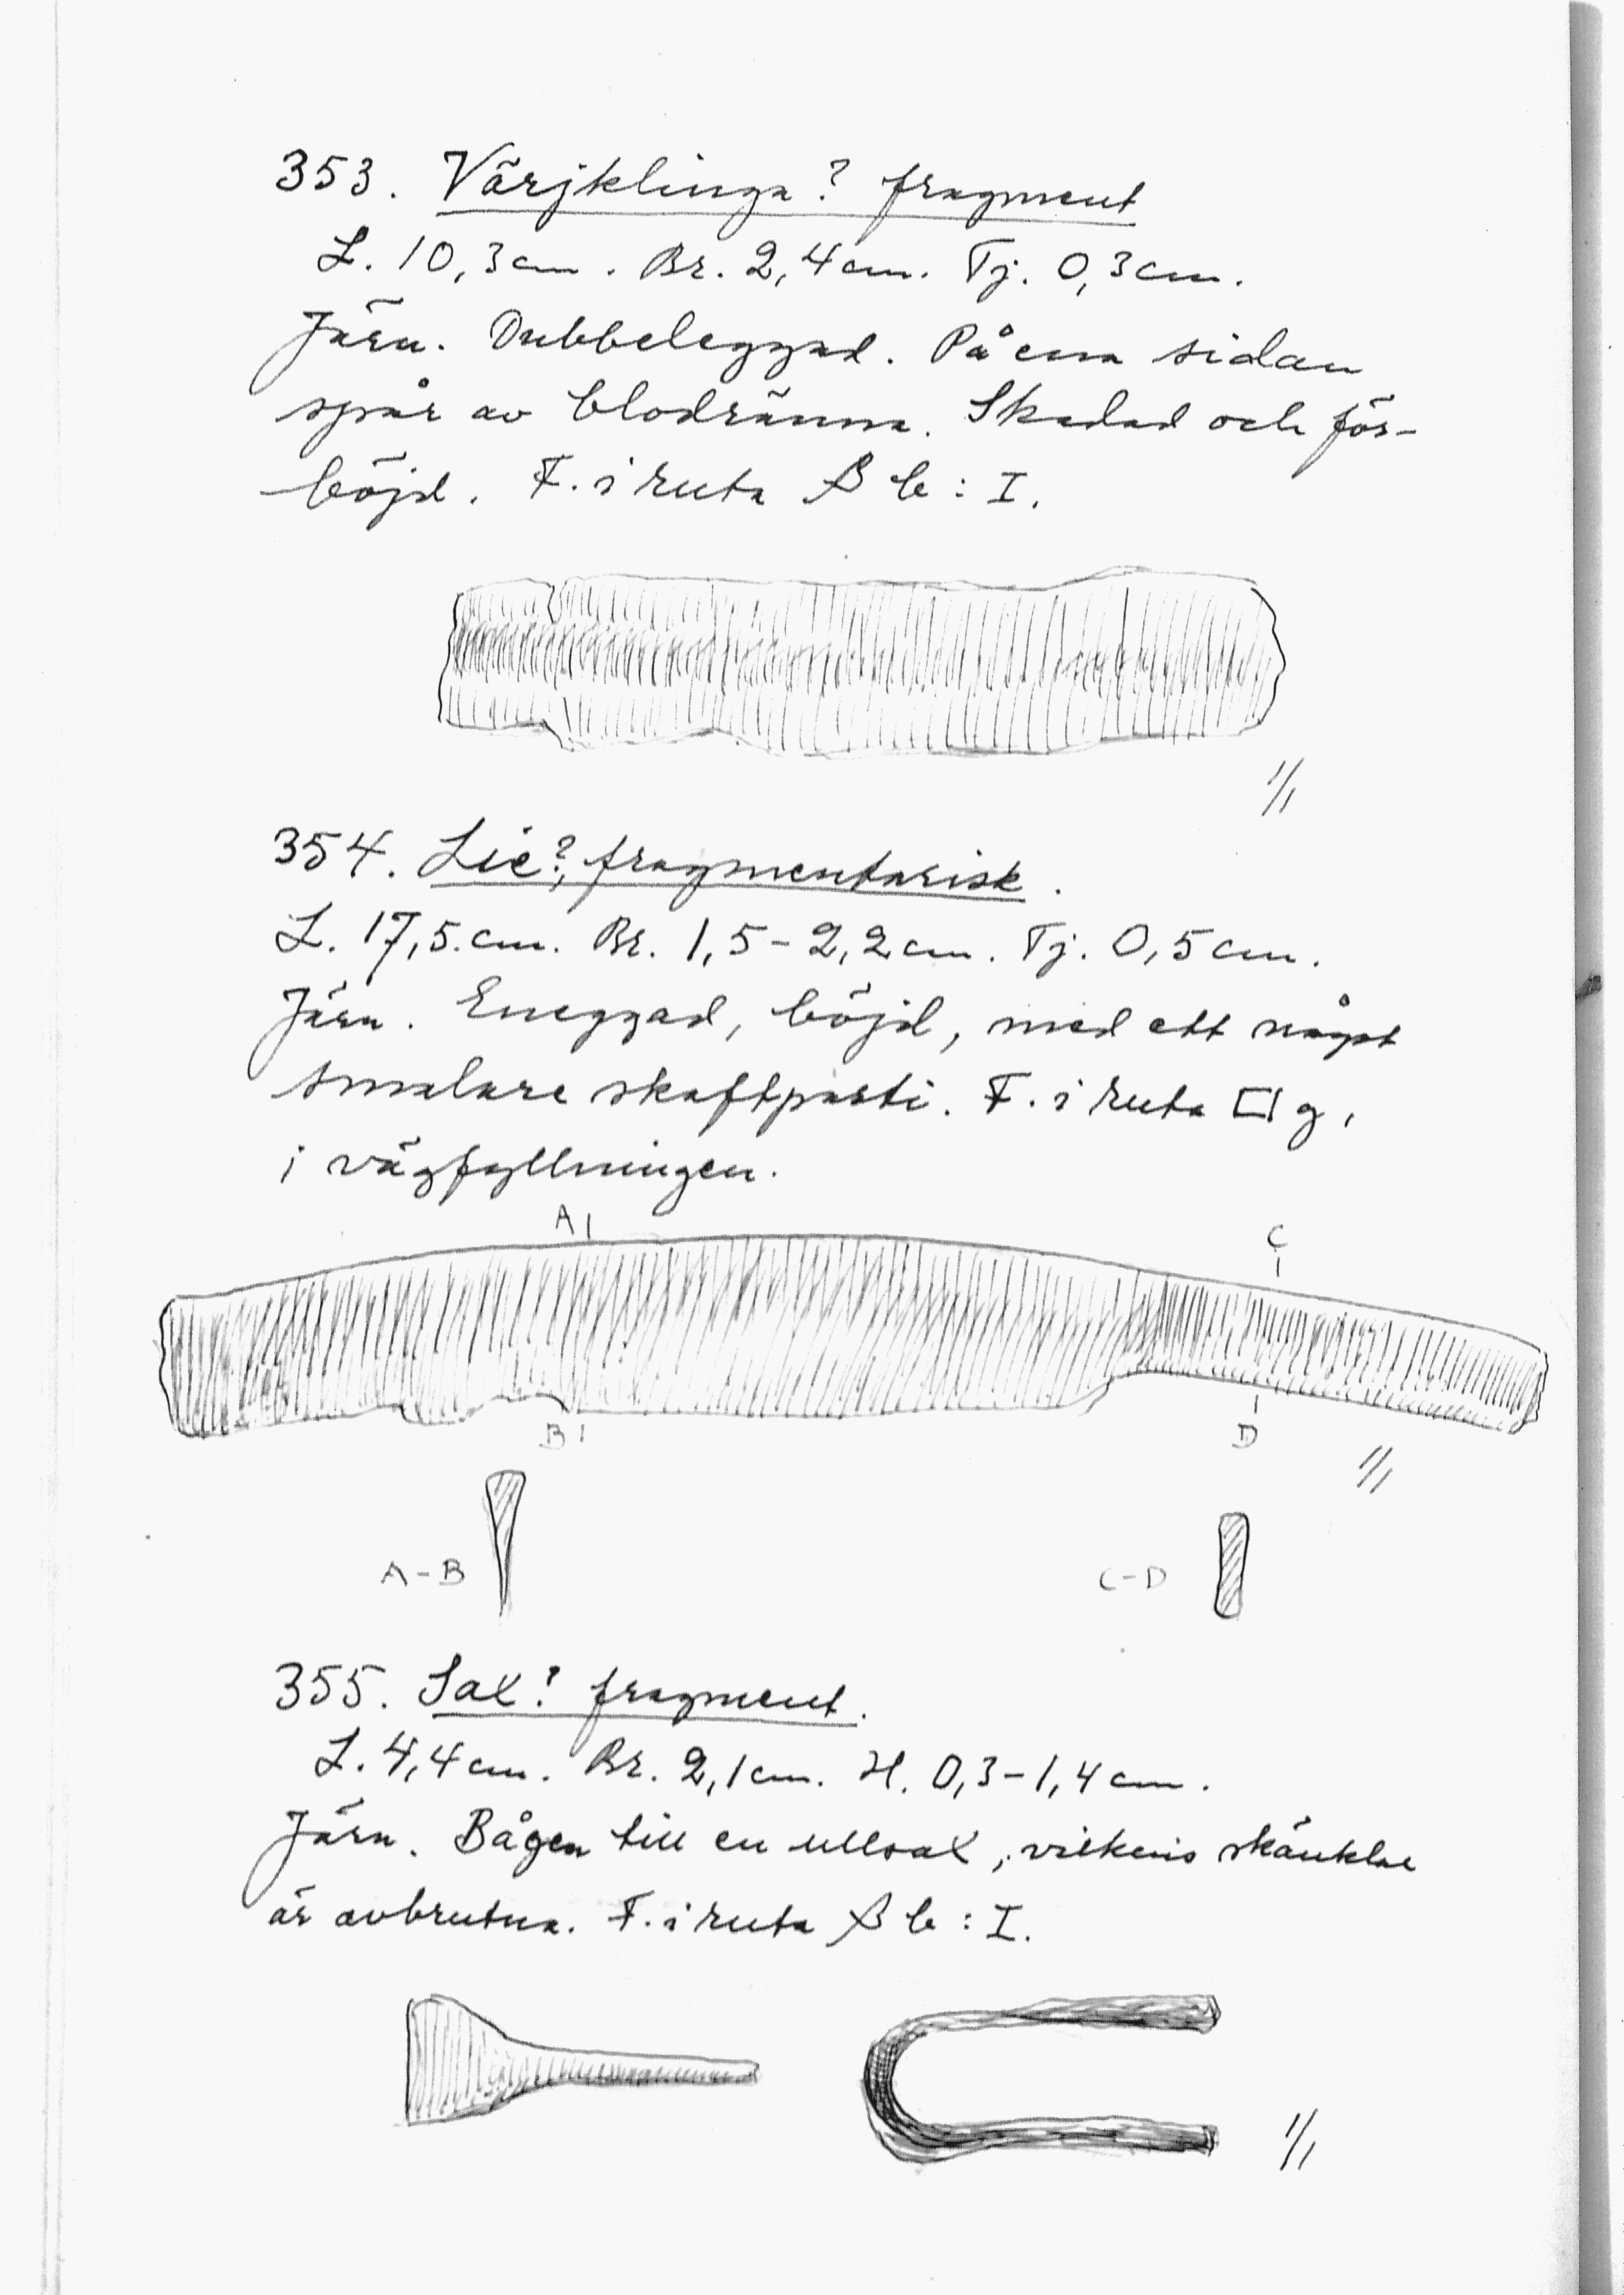 353. Värjklinga? fragment
L. 10,3 cm. Br. 2,4 cm. Tj. 0,3 cm.
Järn. Dubbeleggad. På ena sidan
spår av blodränna. Skadad och för-
böjd. F. i ruta β b : I.
1/1
354. Lie?, fragmentarisk.
L. 17,5 cm. Br. 1,5-2,2 cm. Tj. 0,5 cm.
Järn. Eneggad, böjd, med ett något
smalare skaftparti. F. i ruta □ g,
i vägfyllningen.
A
C
B
D
1/1
A-B
C-D
355. Sax? fragment.
L. 4,4 cm. Br. 2,1 cm. H. 0,3-1,4 cm.
Järn. Bågen till en ullsax, vilkens skänklar
är avbrutna. F. i ruta β b : I.
1/1